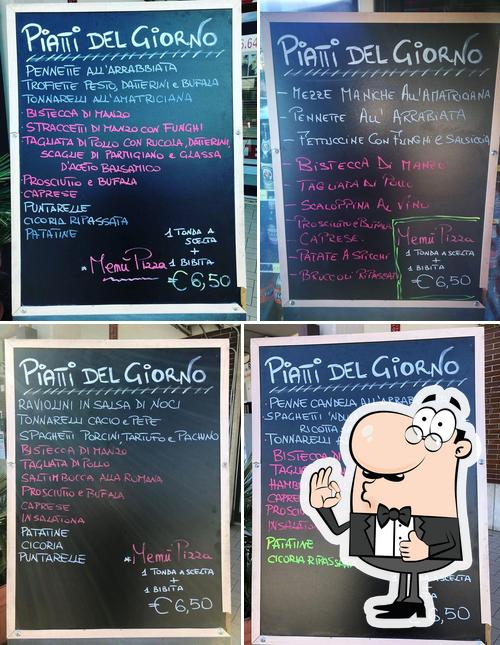 PIATTI DEL GIORNO
PENNETTE ALL'ARRABBIATA
TROFIETTE PESTO, DATTERINI E BUFALA
TONNARELLI ALL'AMATRICIANA
- BISTECCA DI MANZO
- STRACCETTI DI MANZO CON FUNGHI
- TAGLIATA DI POLLO CON RUCOLA, DATTERINI,
SCAGLIE DI PARMIGIANO E GLASSA
D'ACETO BALSAMICO
- PROSCIUTTO E BUFALA
- CAPRESE
PUNTARELLE
CICORIA RIPASSATA
PATATINE
1 TONDA A
SCELTA
+
1 BIBITA
* Menù Pizza
€ 6,50
PIATTI DEL GIORNO
- MEZZE MANICHE ALL'AMATRICIANA
- PENNETTE ALL'ARRABIATA
- FETTUCCINE CON FUNGHI E SALSICCIA
- BISTECCA DI MANZO
- TAGLIATA DI POLLO
- SCALOPPINA AL VINO
- PROSCIUTTO E BUFALA
- CAPRESE
- PATATE A SPICCHI
- BROCCOLI RIPASSATI
Menù Pizza
1 TONDA A SCELTA
+
1 BIBITA
€ 6,50
PIATTI DEL GIORNO
RAVIOLINI IN SALSA DI NOCI
TONNARELLI CACIO e PEPE
SPAGHETTI PORCINI, TARTUFO e PACHINO
BISTECCA DI MANZO
TAGLIATA DI POLLO
SALTIMBOCCA ALLA ROMANA
PROSCIUTTO e BUFALA
CAPRESE
INSALATONA
PATATINE
CICORIA
PUNTARELLE
* Menù Pizza
1 TONDA A SCELTA
+
1 BIBITA
€ 6,50
PIATTI DEL GIORNO
PENNE CANDELA ALL'ARRAB
SPAGHETTI 'NDU
RICOTTA
TONNARELLI A
BISTECCA D
TAGLIA
HAMB
CAPRES
PROSC
INSALATO
PATATINE
CICORIA RIPASSATA
6,50